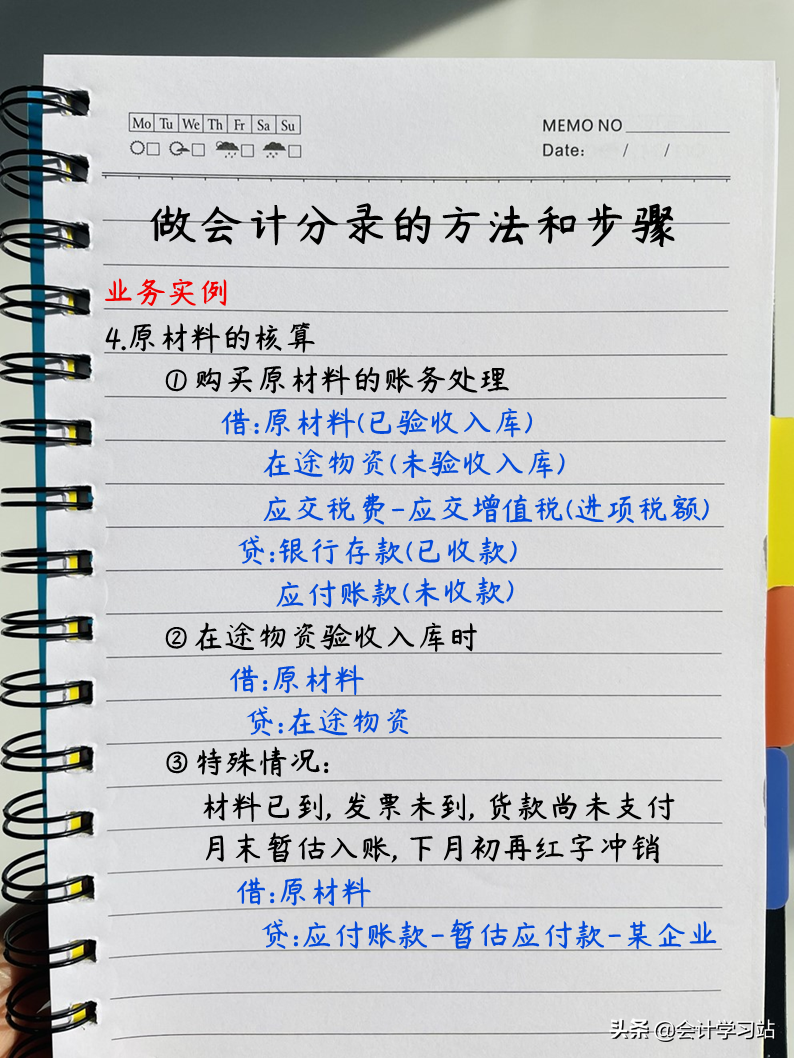 Mo Tu We Th Fr Sa Su
MEMO NO
Date: / /
做会计分录的方法和步骤
业务实例
4.原材料的核算
①购买原材料的账务处理
借:原材料(已验收入库)
在途物资(未验收入库)
应交税费-应交增值税(进项税额)
贷:银行存款(已收款)
应付账款(未收款)
②在途物资验收入库时
借:原材料
贷:在途物资
③特殊情况:
材料已到,发票未到,货款尚未支付
月末暂估入账,下月初再红字冲销
借:原材料
贷:应付账款-暂估应付款-某企业
头条 @会计学习站